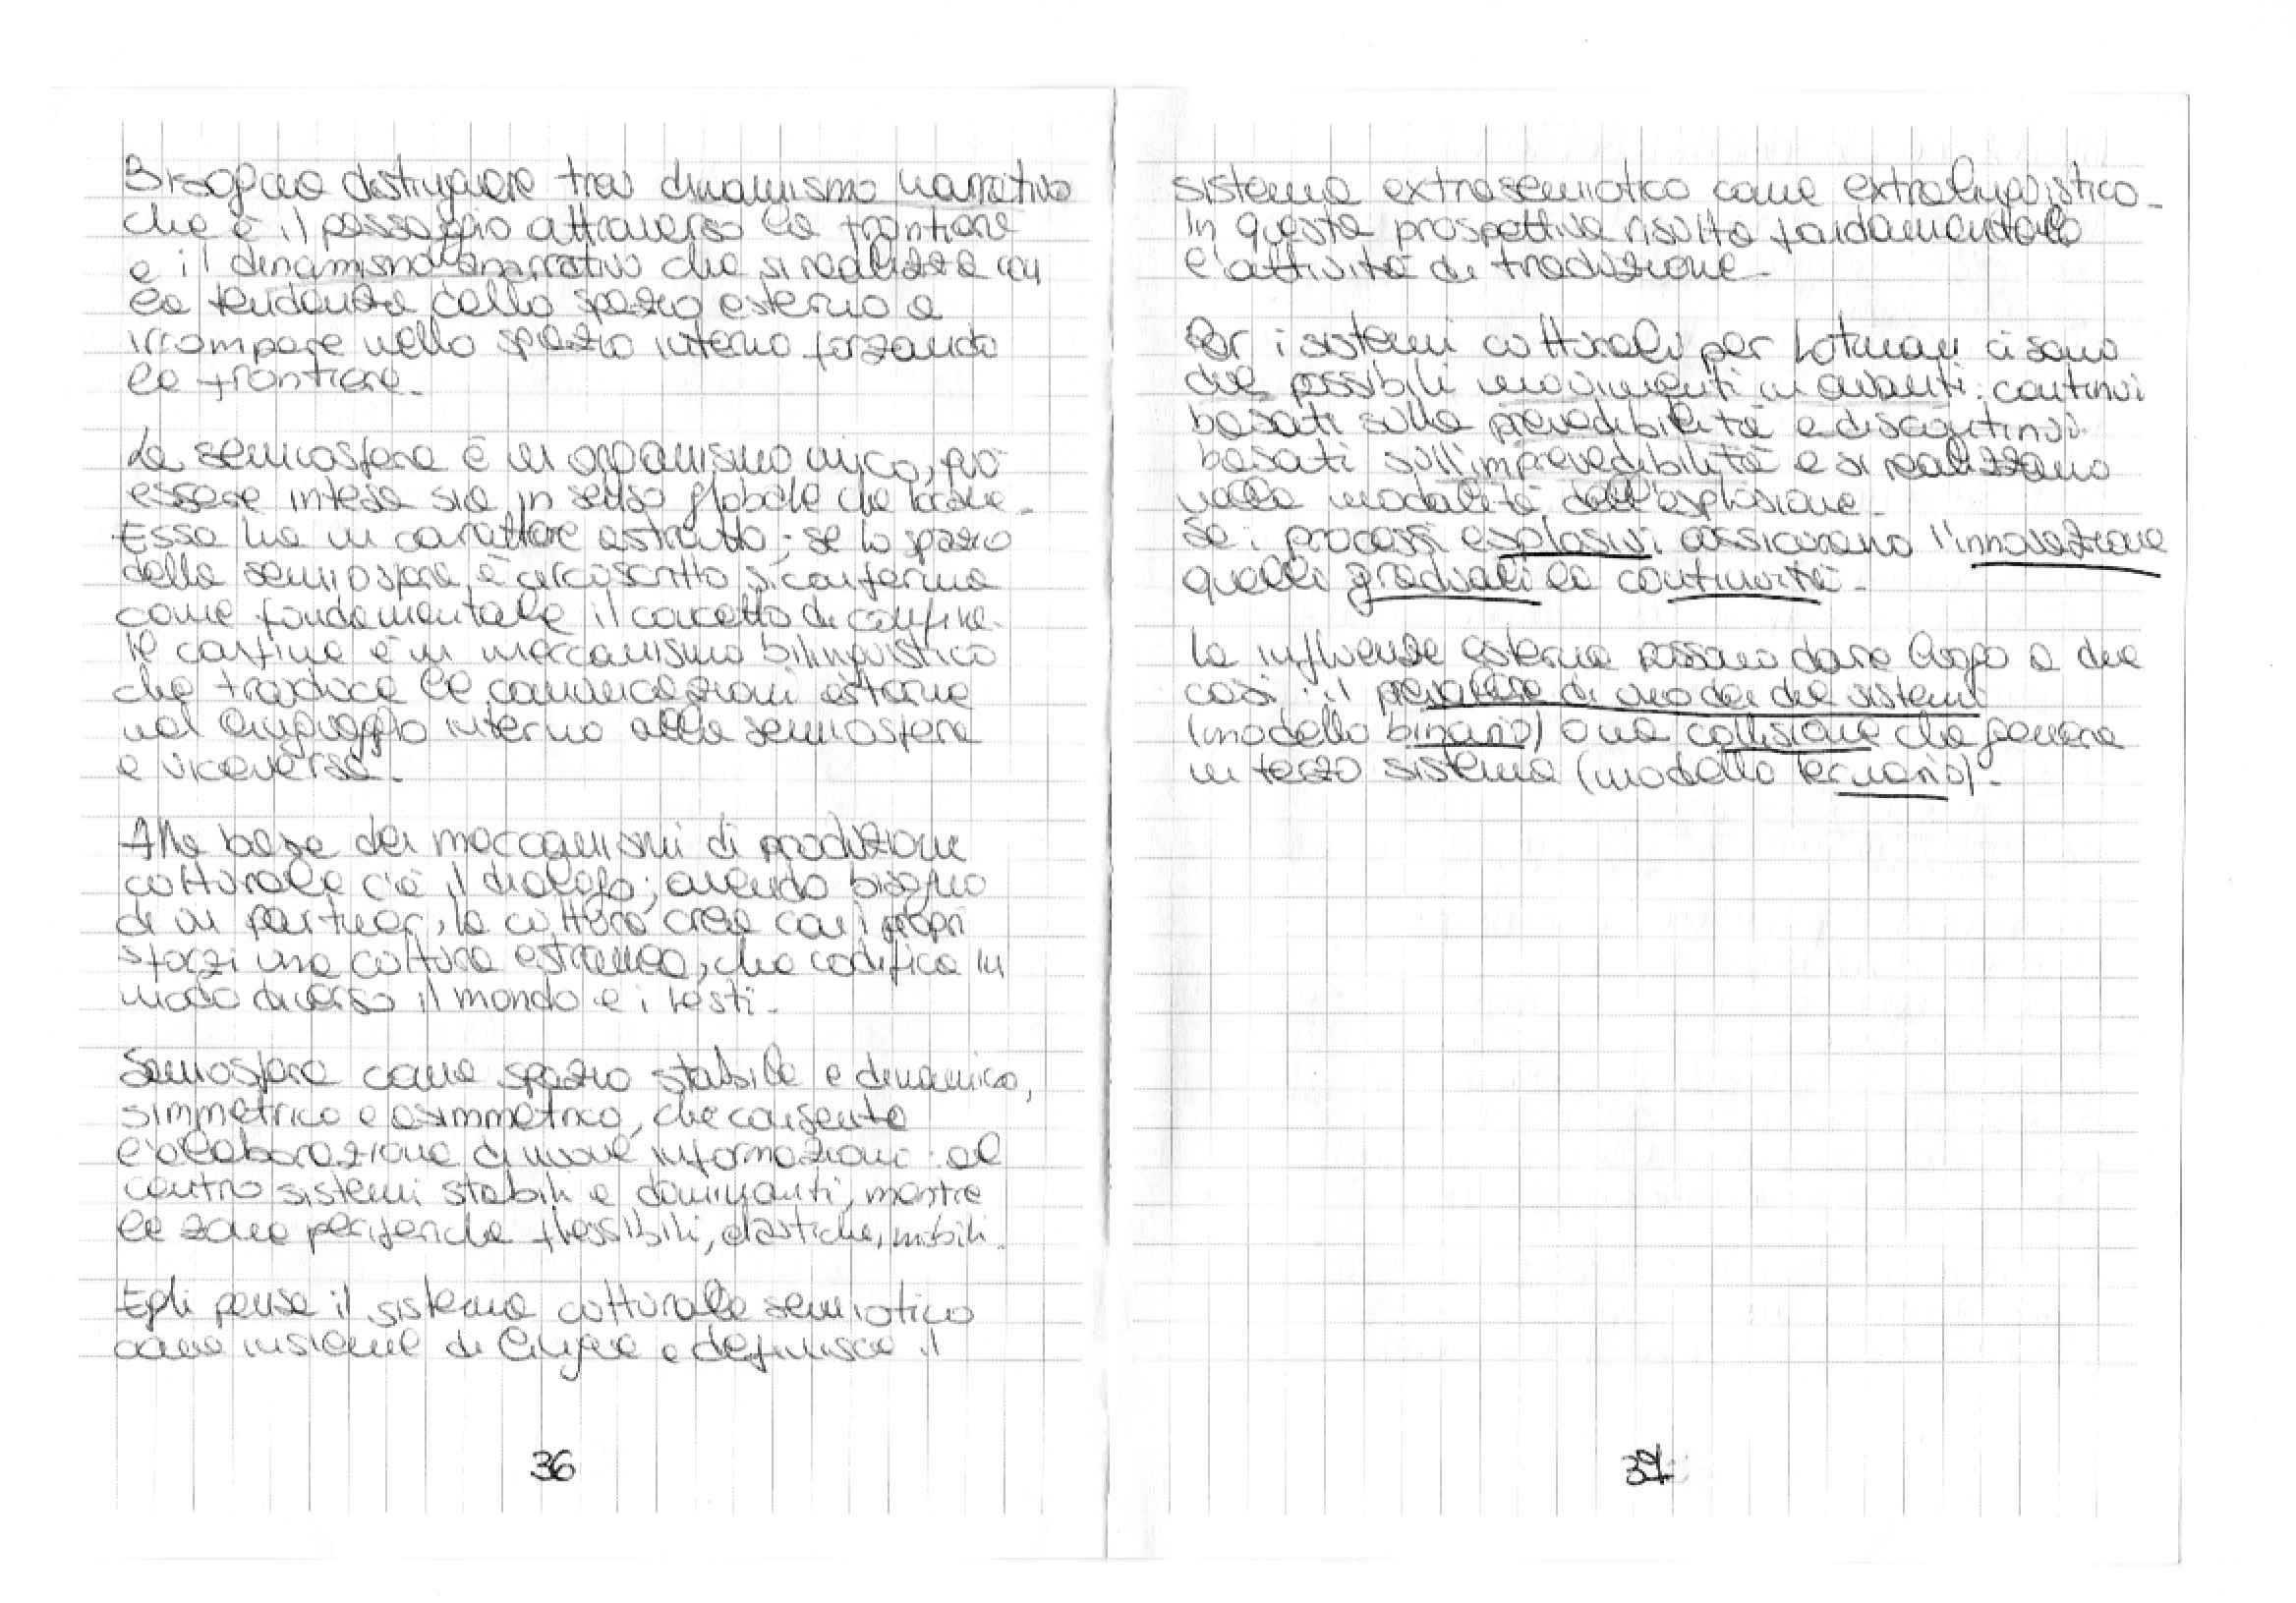 Bisogna distinguere tra dinamismo narrativo
che è il passaggio attraverso le frontiere
e il dinamismo anarrativo che si realizza con
la tendenza dello spazio esterno a
irrompere nello spazio interno forzando
le frontiere.
La semiosfera è un organismo unico, può
essere intesa sia in senso globale che locale.
Essa ha un carattere astratto; se lo spazio
della semiosfera è circoscritto si conferma
come fondamentale il concetto di confine.
Il confine è un meccanismo bilinguistico
che traduce le comunicazioni esterne
nel linguaggio interno alla semiosfera
e viceversa.
Alla base dei meccanismi di produzione
culturale c'è il dialogo; avendo bisogno
di un partner, la cultura crea con i propri
sforzi una cultura estranea, che codifica in
modo diverso il mondo e i testi.
Semiosfera come spazio stabile e dinamico,
simmetrico e asimmetrico, che consente
l'elaborazione di nuove informazioni: al
centro sistemi stabili e dominanti, mentre
le zone periferiche flessibili, elastiche, mobili.
Egli pensa il sistema culturale semiotico
come insieme di lingue e definisce il
36
sistema extrasemiotico come extralinguistico.
In questa prospettiva risulta fondamentale
l'attività di traduzione.
Per i sistemi culturali per Lotman ci sono
due possibili movimenti in avanti: continui
basati sulla prevedibilità e discontinui
basati sull'imprevedibilità e si realizzano
nella modalità dell'esplosione.
Se i processi esplosivi assicurano l'innovazione
quelli graduali la continuità.
Le influenze esterne possono dare luogo a due
casi: il prevalere di uno dei due sistemi
(modello binario) o una collisione che genera
un terzo sistema (modello ternario).
37